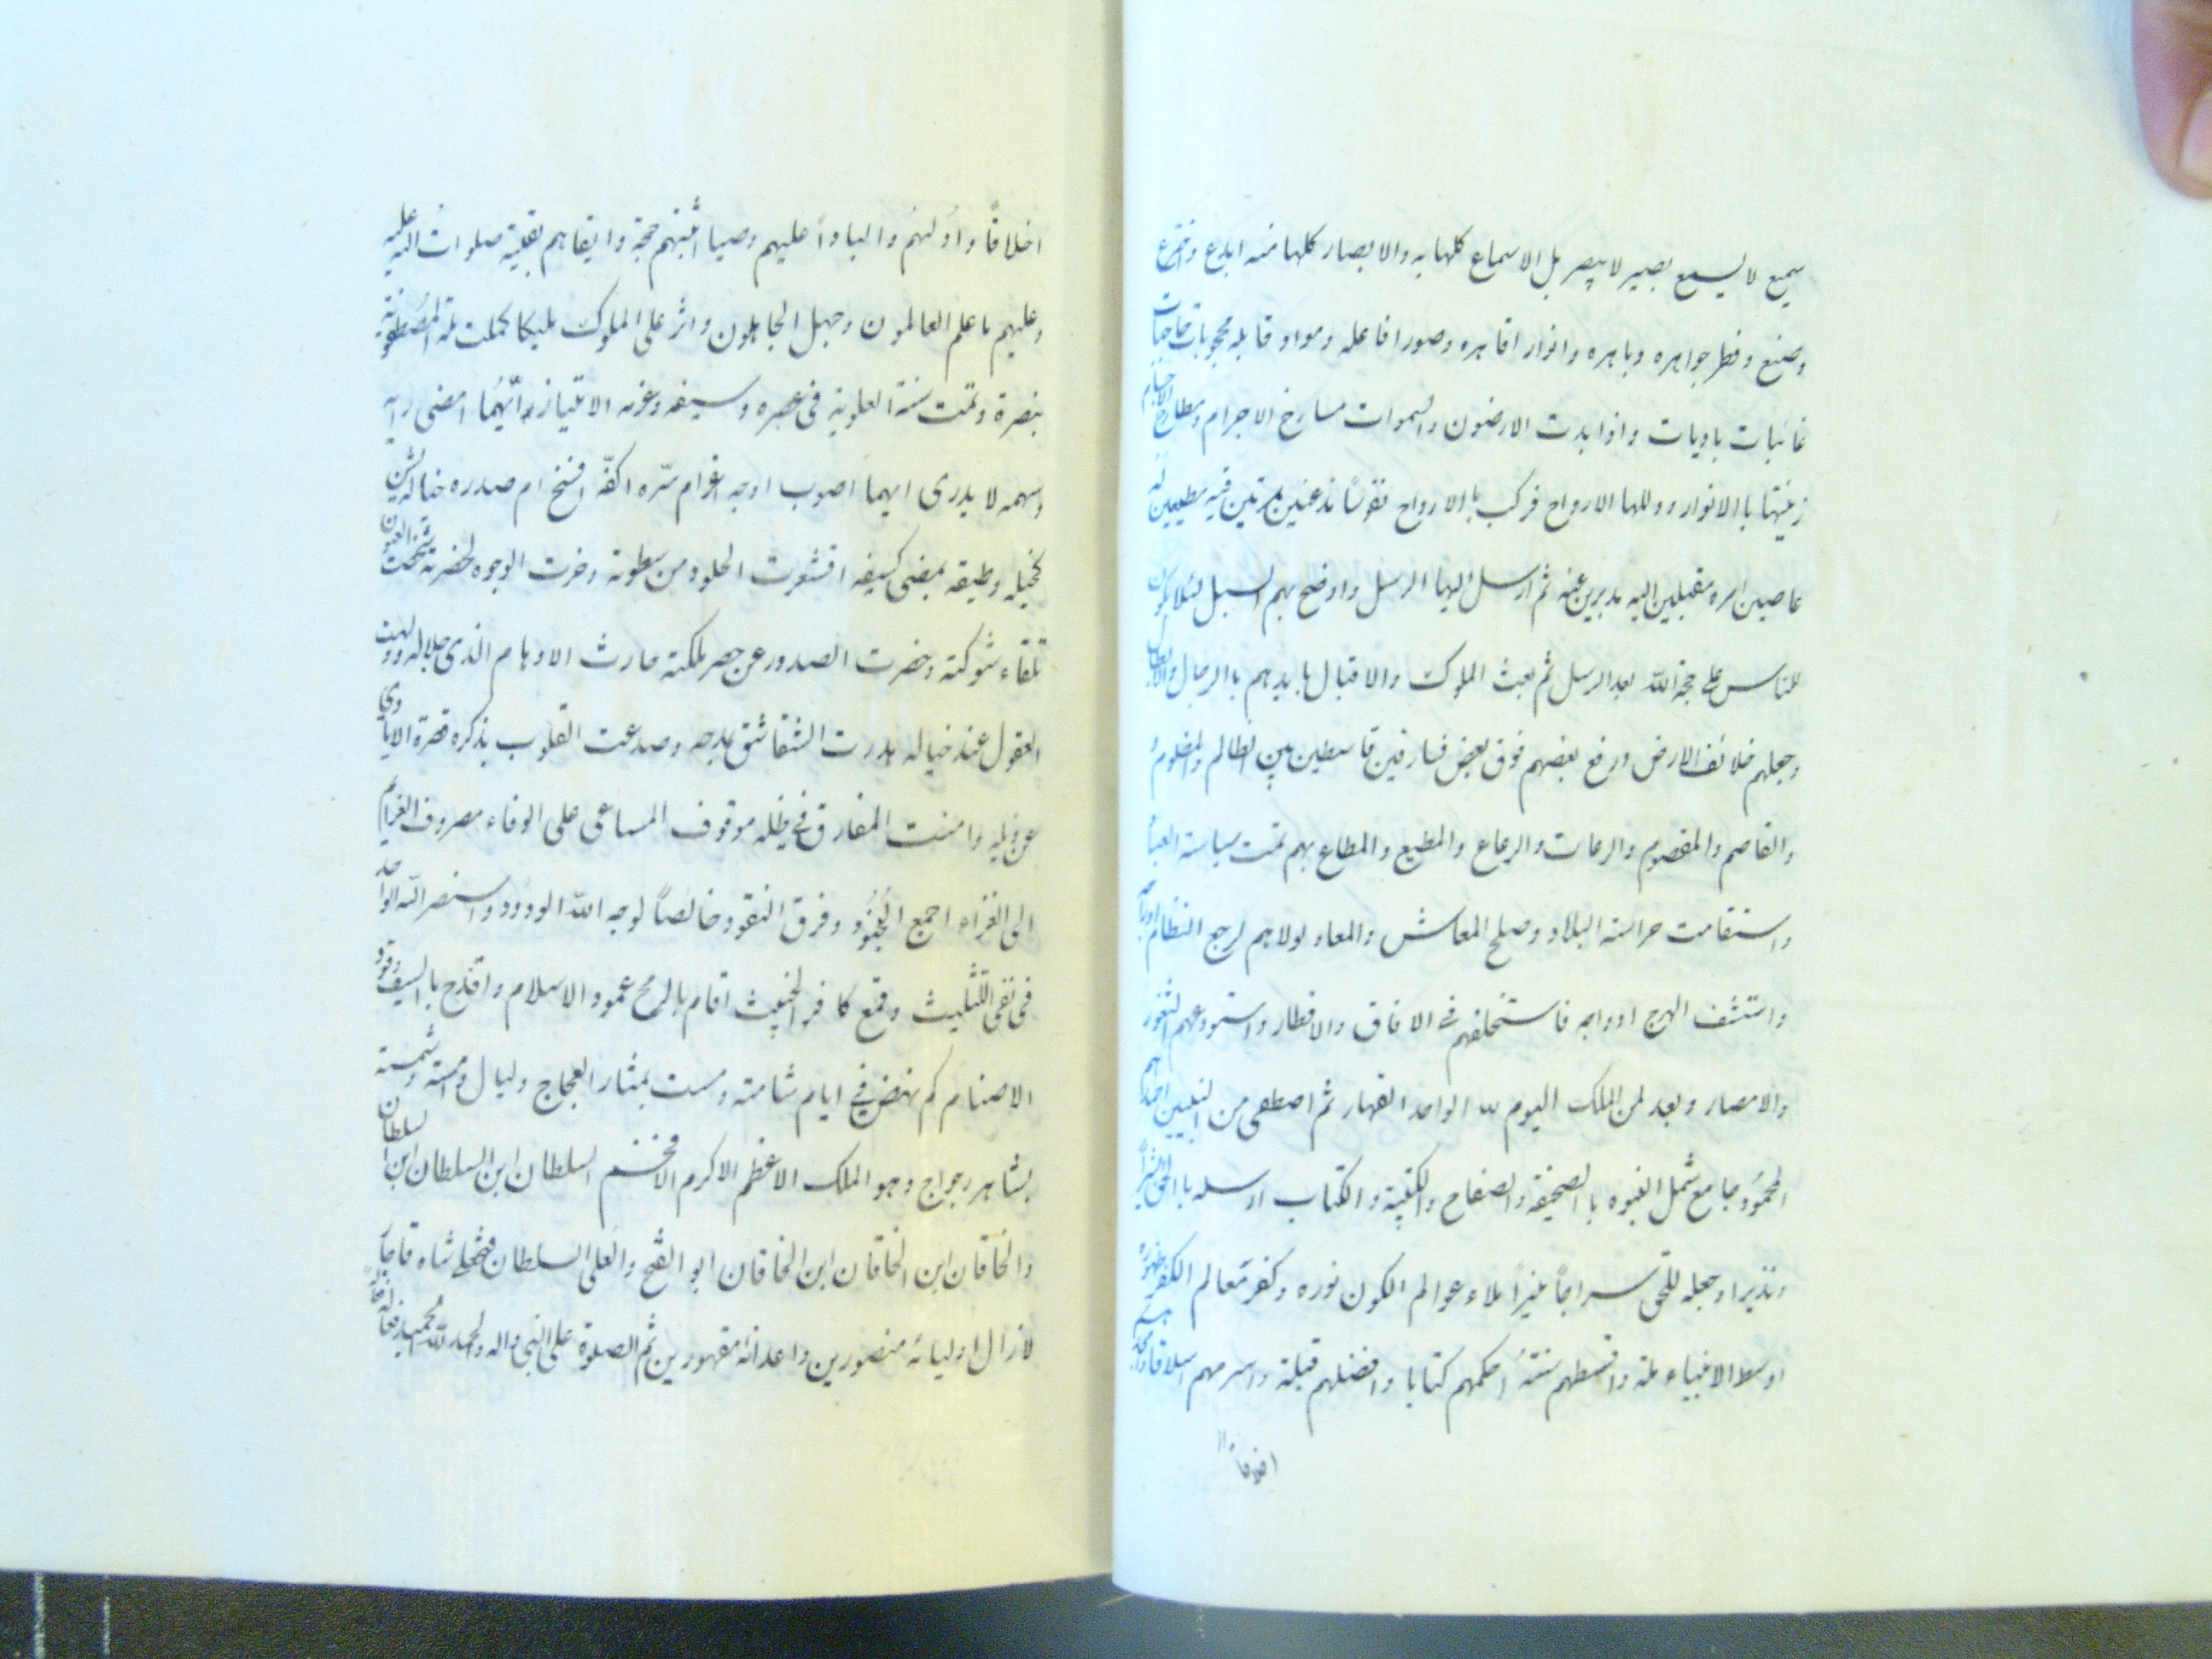 سميع لا يسمع بصير لا يبصر بل الاسماع كلها به والابصار كلها منه ابدع واخترع
وصنع وفطر جواهره وباهره وانوار اقاهره وصورا فاعله ومواد قابله محجوبات
غائبات باديات واذا بدت الارضون والسموات مسارح الاجرام ومطارح الاجسام
زينتها با الانوار ووللها الارواح فركب با الارواح نفوسًا مذعنين فيه مطيعين له
عاصين امره مقبلين اليه مدبرين عنه ثم ارسل اليها الرسل واوضح بهم السبل لئلا يكون
للناس على حجة الله بعد الرسل ثم بعث الملوك والاقبال بايديهم با الرجال
وجعلهم خلائف الارض ورفع بعضهم فوق بعض فسارقين قاسطين بين الظالم والمظلوم و
والقاصم والمقصوم والرعات والرعاع والمطيع والمطاع بهم تمت سياسة العباد
واستقامت حراسة البلاد وصلح المعاش والمعاد لولاهم لرجع النظام
واستشف الهرج اوواجه فاستخلفهم فى الافاق والاقطار واستودعهم الثغور
والامصار وبعد لمن الملك اليوم لله الواحد القهار ثم اصطفى من النبيين احمدهم
المحمود جامع شمل النبوه با الصحيفة والصفاح والكتيبة والكتاب ارسله با الحق بشيراً
ونذيرا وجعله للحق سراجاً منيراً ملاء عوالم الكون نوره وكفر معالم الكفر ظهوره
اوسط الانبياء ملة واقسطهم سنتهُ احكمهم كتابا وافضلهم قبلة واسرمهم اسلاقا
اخلاقاً
اخلاقاً واولهُم والباواً عليهم وصيا اثبتهم حجة وابقاهم بقية صلوات الله عليه
وعليهم ما علم العالمون وجهل الجاهلون واثر على الملوك مليكا كملت ملة المصطفوية
بنصرة وتمت سنة العلوية فى عصره وسيفه وعزمه الامتياز ايّهُما امضى
وسهمه لا يدرى ايهما اصوب اوجه اغرام سرّه اكفّه افسخ ام صدره
كخيله وطيقه بمضى كسيفه اقشعرت الجلود من سطوته وخرت الوجوه لحضرته شخصت العيون
تلقاء شوكته وحضرت الصدور عن حصر ملكته حارت الاوهام الذى جلاله وولهت
العقول عند خياله هدرت الشقاشق بمدحه وصدعت القلوب بذكره قصرة الايادى
عن ذيله وامنت المفارق فى ظله موقوف المساعى على الوفاء مصروف الغرايم
الى الغزاه اجمع الجُنوُد وفرق النقود خالصاً لوجه الله الودود واستنصر الله الواحد
فى نفى التثليث وقمع كافر الخبيث اقام بالرمح عمود الاسلام واقدح با السيف وقود
الاصنام كم نهض فى ايام شامته ومست بمثار العجاج وليال
بشاهر رجواج وهو الملك الاعظم الاكرم الافخم السلطان ابن السلطان ابن السلطان
والخاقان ابن الخاقان ابن الخاقان ابو الفتح والعلى السلطان فتحعلى شاه قاجار
لا زال اوليائه منصورين واعدائه مقهورين ثم الصلوة على النبى واله والحمد لله